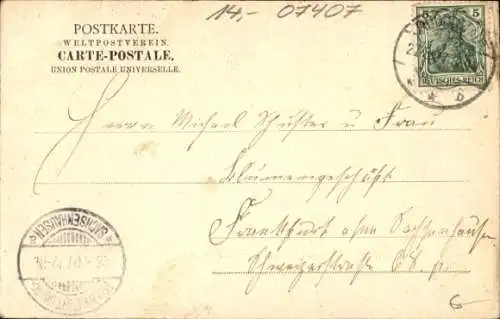 14.- 07407
POSTKARTE.
WELTPOSTVEREIN.
CARTE-POSTALE.
UNION POSTALE UNIVERSELLE.
5
DEUTSCHES REICH
* b
Herrn Michael Schuster u Frau
Blumengeschäft
Frankfurt ahm Sachsenhausen
Schweizerstraße
SACHSENHAUSEN
6